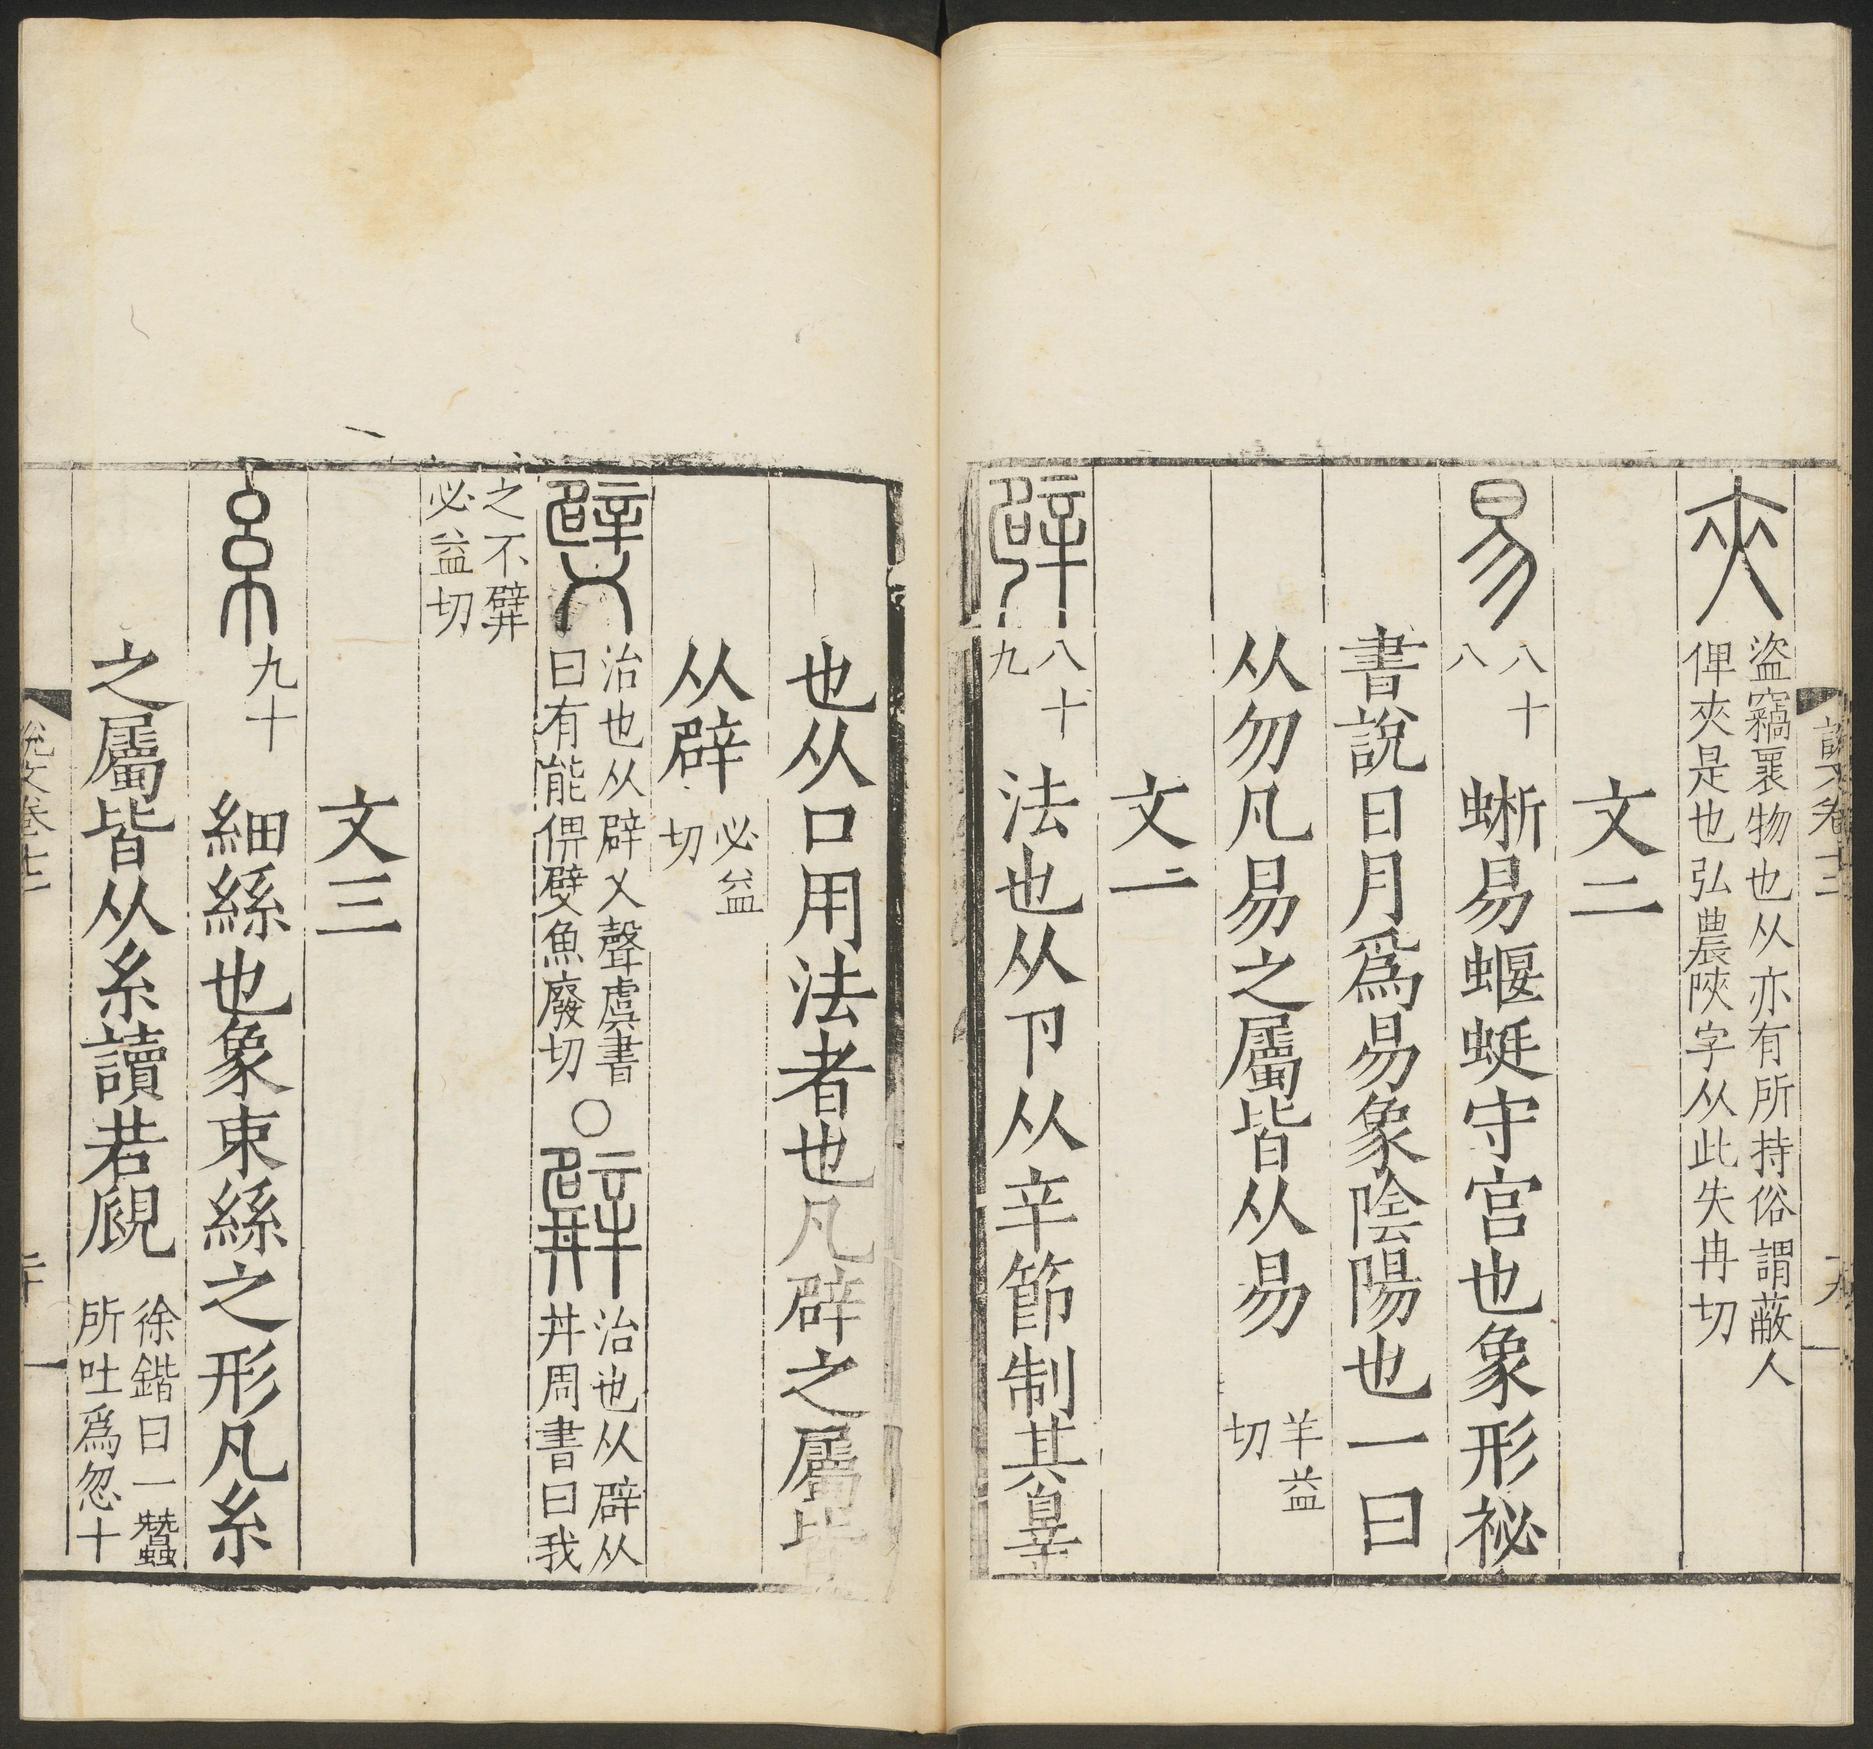 夾 盜竊褱物也从亦有所持俗謂蔽人
俾夾是也弘農陝字从此失冉切
文二
易 八十八 蜥易蝘蜓守宫也象形祕
書說日月爲易象陰陽也一曰
从勿凡易之屬皆从易 羊益切
文一
辟 八十九 法也从卩从辛節制其辠
也从口用法者也凡辟之屬皆
从辟 必益切
𨐨 治也从辟乂聲虞書
曰有能俾𨐨魚廢切
○ 𨐢 治也从辟从
丼周書曰我
之不𨐢
必益切
文三
糸 九十 細絲也象束絲之形凡糸
之屬皆从糸讀若覛 徐鍇曰一蠶
所吐爲忽十
說文卷十二
十九
說文卷十二
二十